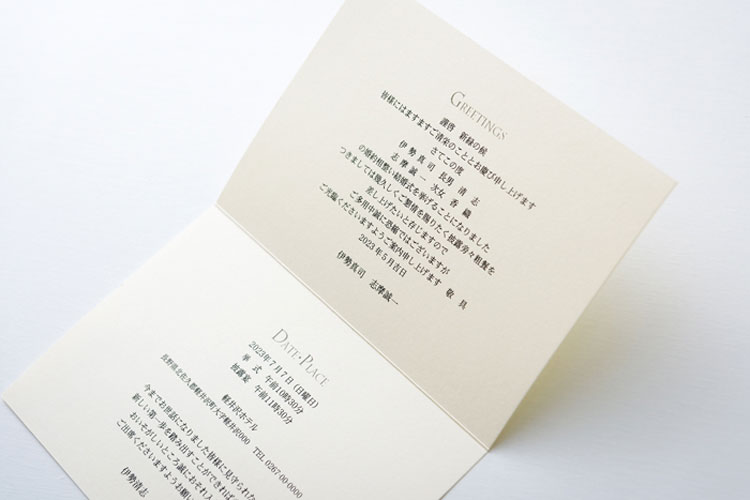 GREETINGS
謹啓 新緑の候
皆様にはますますご清栄のこととお慶び申し上げます
さてこの度
伊勢真司 長男 清 志
志摩誠一 次女 香 織
の婚約相整い結婚式を挙げることになりました
つきましては幾久しくご懇情を賜りたく披露旁々粗餐を
差し上げたいと存じますので
ご多用中誠に恐縮ではございますが
ご光臨くださいますようご案内申し上げます 敬 具
2023年5月吉日
伊勢真司 志摩誠一
DATE・PLACE
2023年7月7日（日曜日）
挙 式 午前10時30分
披露宴 午前11時30分
軽井沢ホテル
長野県北佐久郡軽井沢町大字軽井沢000 TEL 0267-00-0000
今までお世話になりました皆様に見守られな
新しい第一歩を踏み出すことができれば
おいそがしいところ誠におそれ
ご出席くださいますようお願
伊勢清志